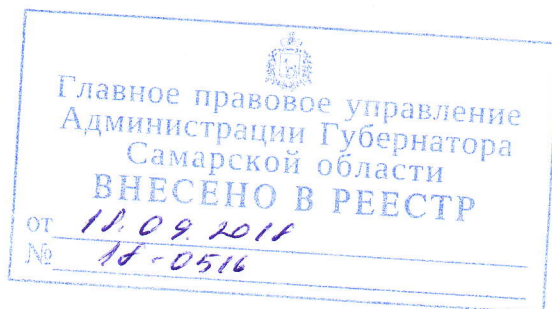 Главное правовое управление
Администрации Губернатора
Самарской области
ВНЕСЕНО В РЕЕСТР
от 18.09.2018
№ 18-0516